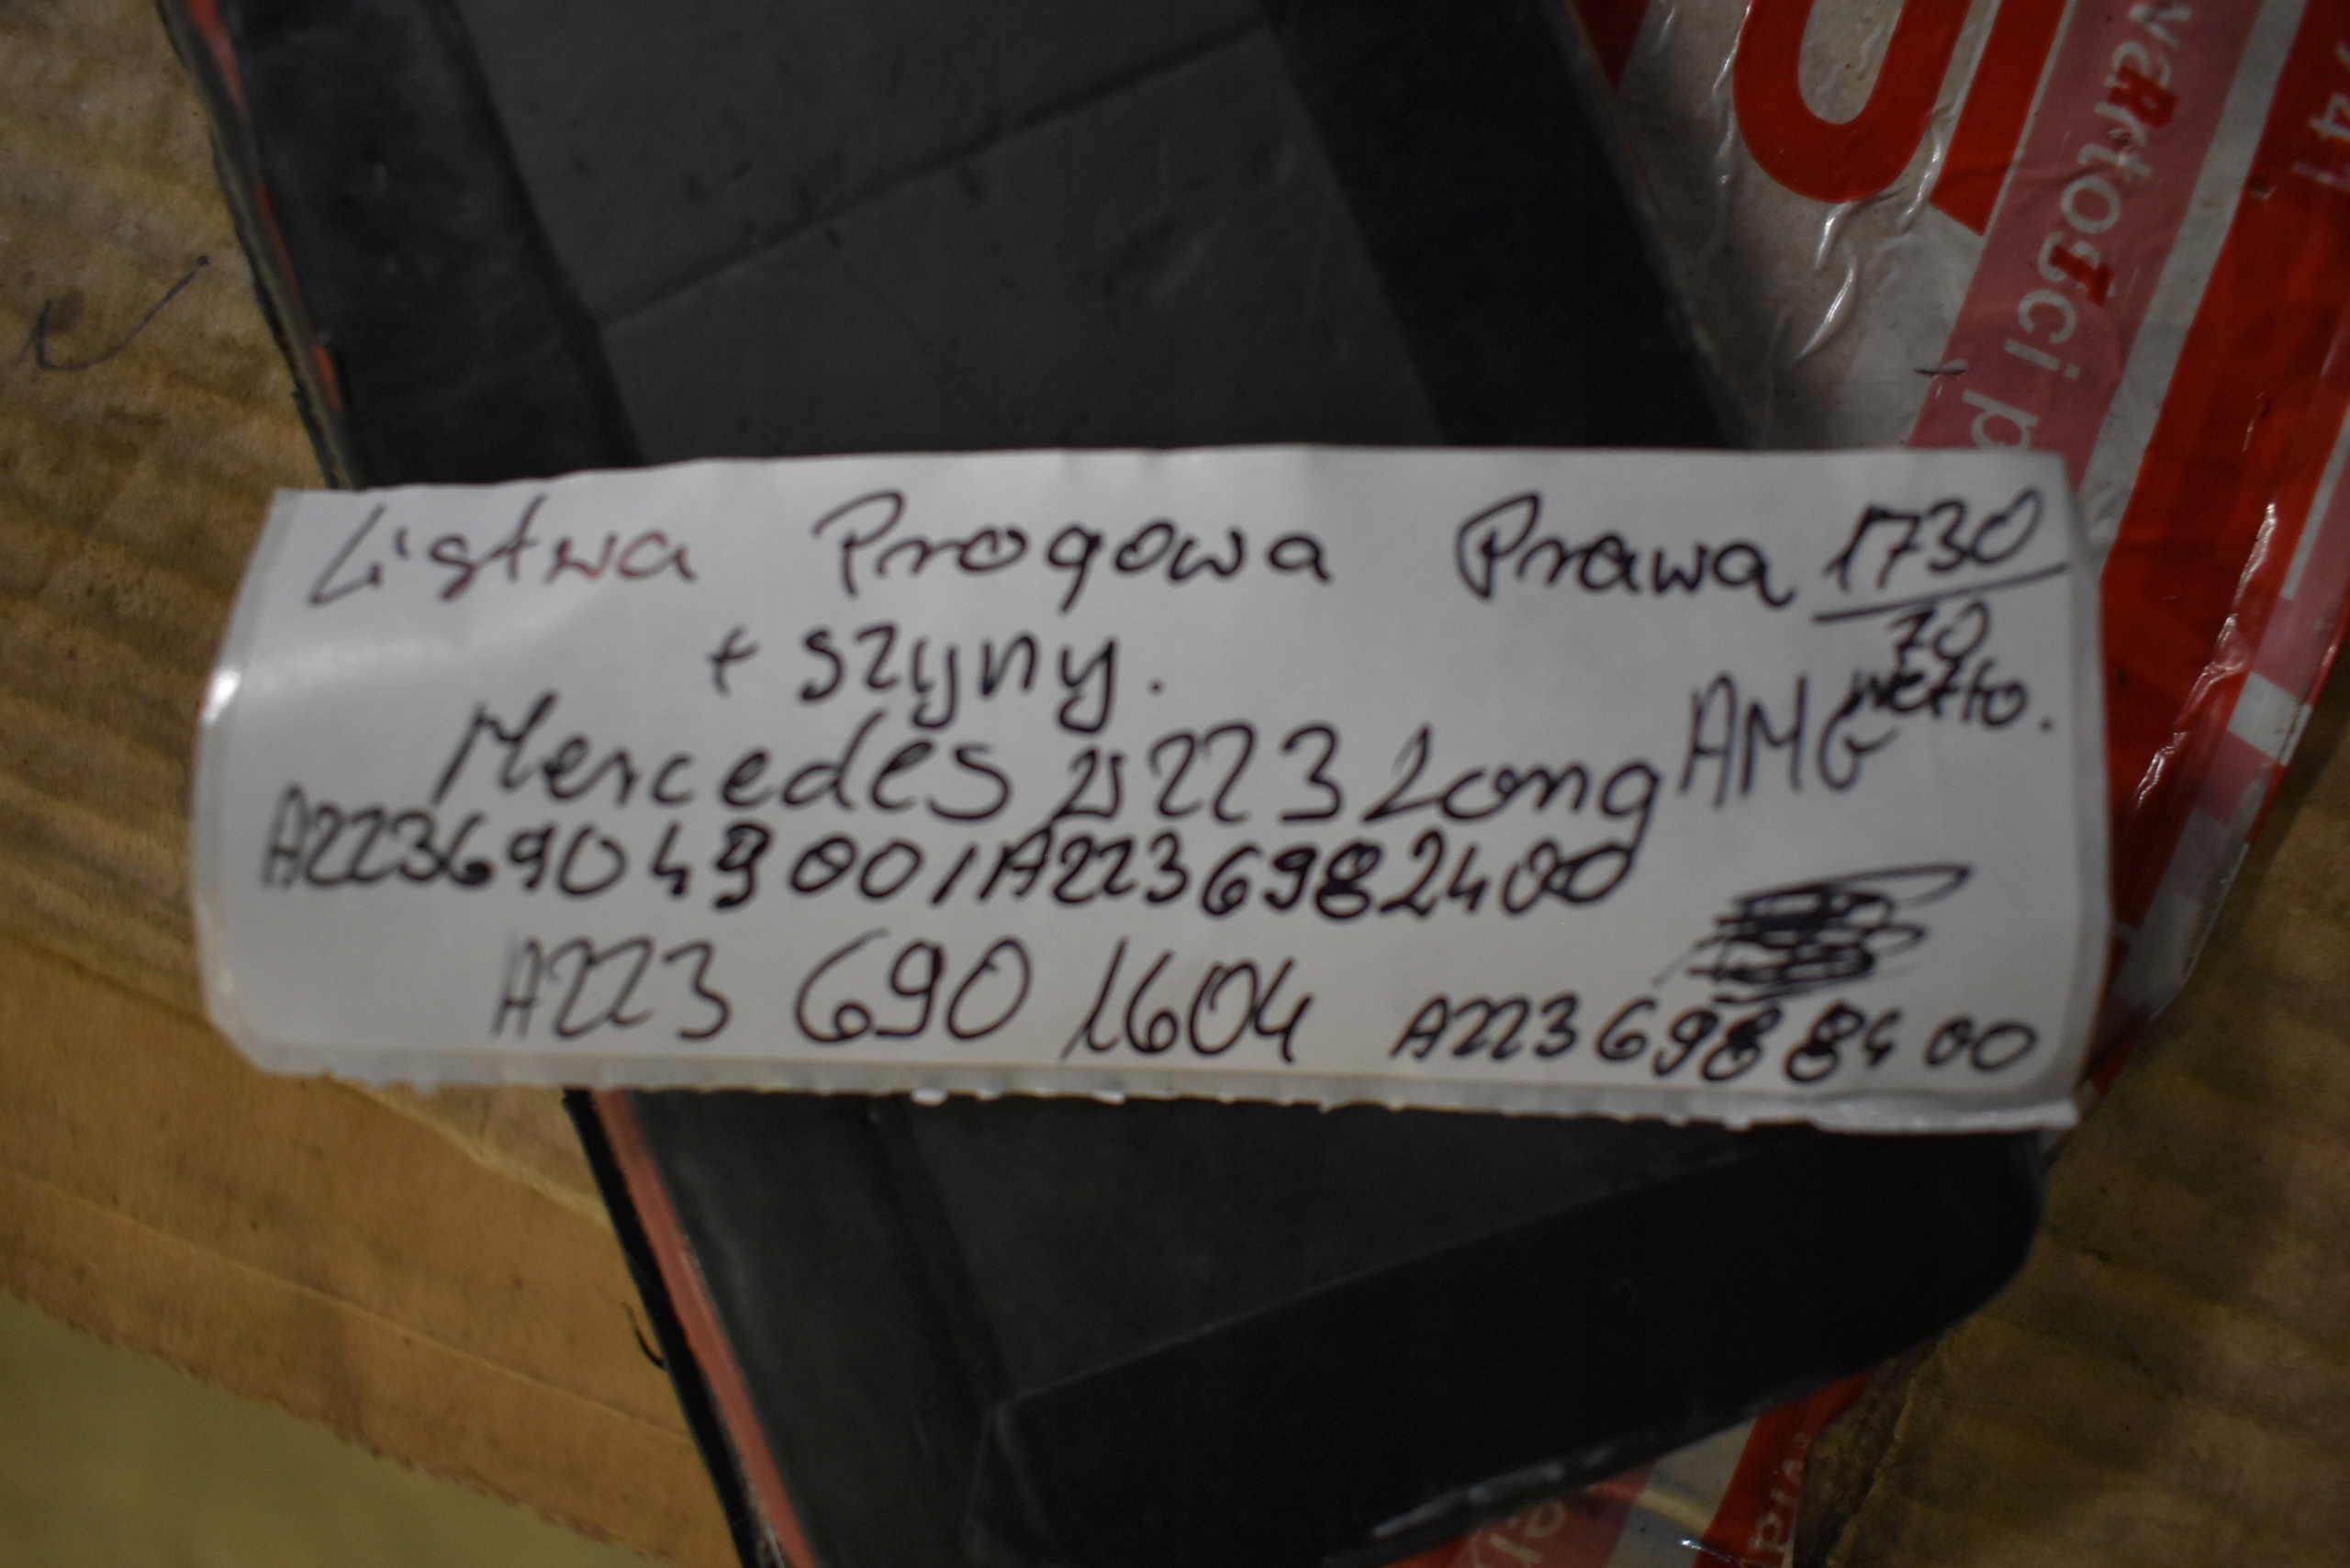 Listwa Progowa Prawa 1730
70
+ szyny. netto.
Mercedes W223 Long AMG
A2236904900/A2236982400
A223 690 1604 A2236988400
wartości p